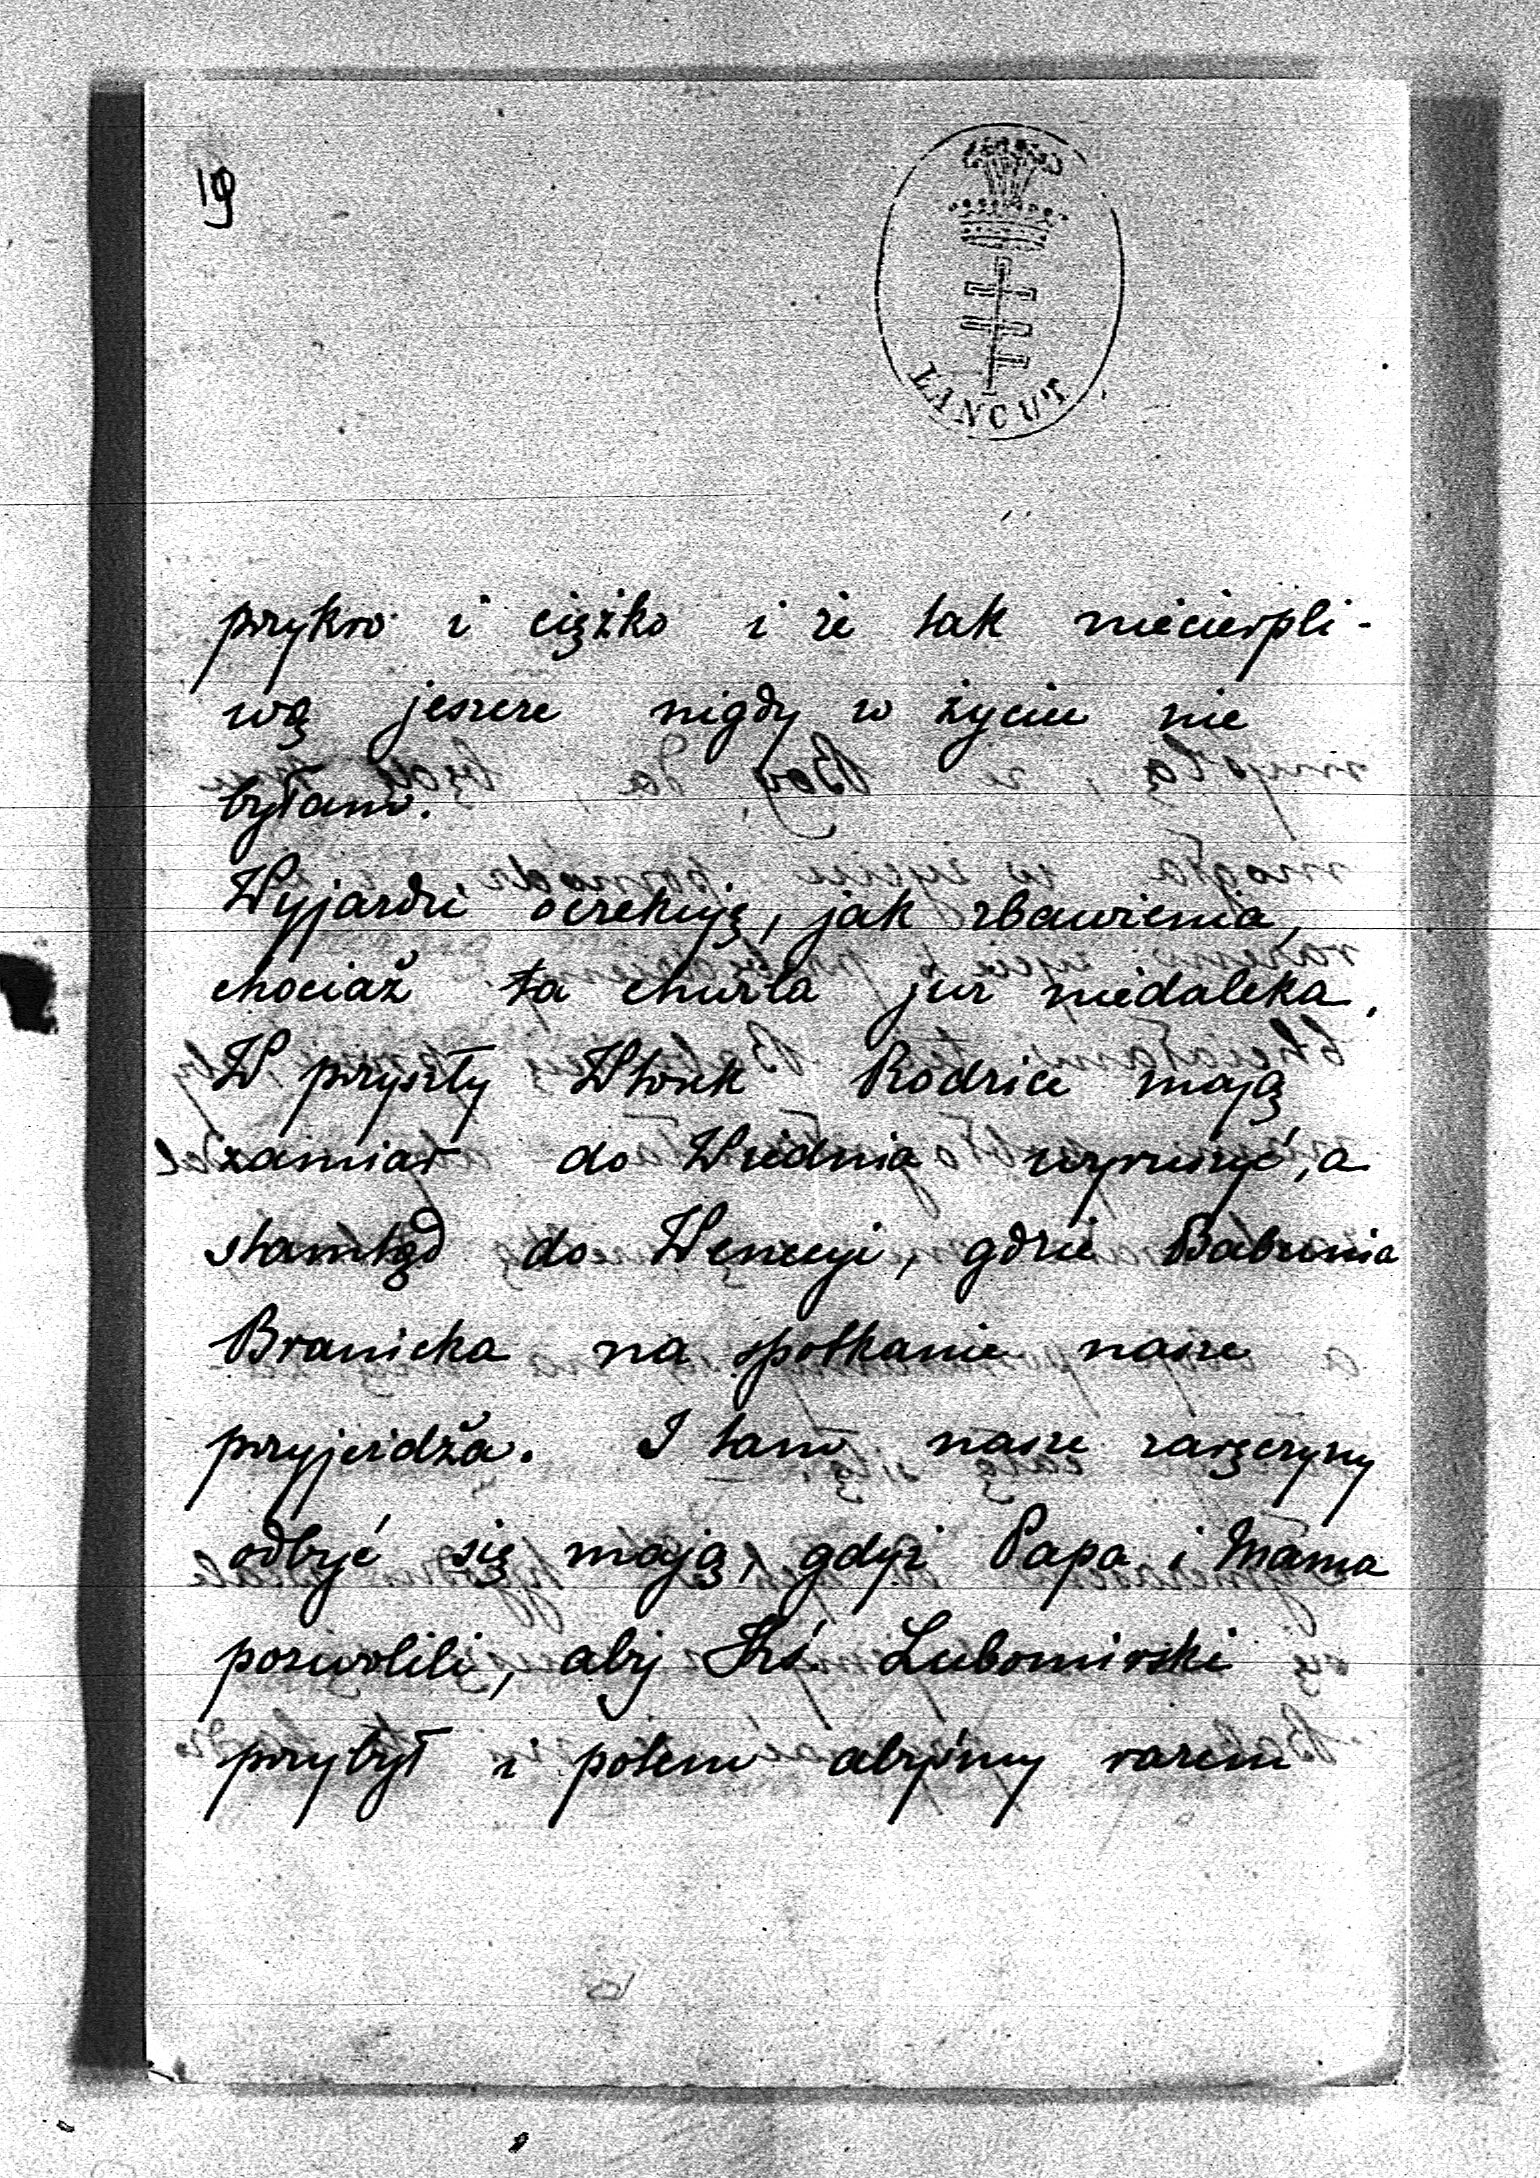 19
ŁANCUT
przykro i ciężko i że tak niecierpli-
wą jeszcze nigdy w życiu nie
byłam.
Wyjazdu oczekuję, jak zbawienia,
chociaż ta chwila już niedaleka.
W przyszły Wtorek Rodzice mają
zamiar do Wiednia wyruszyć, a
stamtąd do Wenecyi, gdzie Babunia
Branicka na spotkanie nasze
przyjeżdża. I tam nasze zaręczyny
odbyć się mają, gdyż Papa i Mama
pozwolili, aby Xść Lubomirski
przybył i potem abyśmy razem